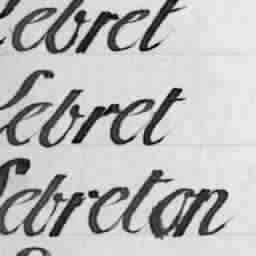 Lebret
Lebret
Lebreton